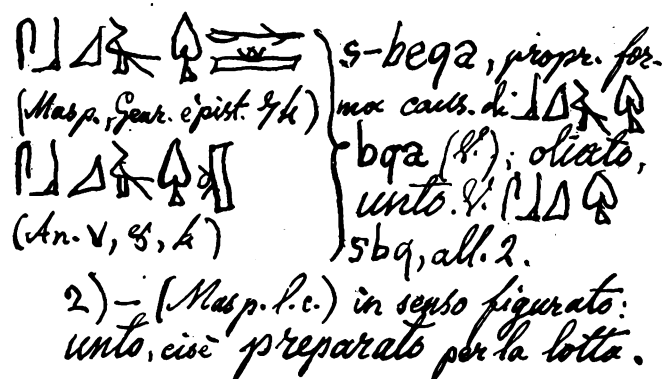 𓋴𓃀𓈎𓄿𓆭
(Masp., Genr. épist.
𓋴𓃀𓈎𓄿𓆭
(An. V,
s-beqa, propr. for-
ma caus. di 𓃀𓈎𓄿𓆭
bqa (V.); oliato,
unto. V. 𓋴𓃀𓈎𓆭
sbq, all. 2.
2) — (Masp. l. c.) in senso figurato:
unto, cioè preparato per la lotta.